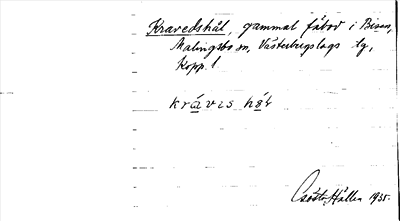 Kravedshål, gammal fäbod i Bisen,
Malingsbo sn, Västerbergslags tg,
Kopp. l
kråvis hål
Gösta Hållen 1935.